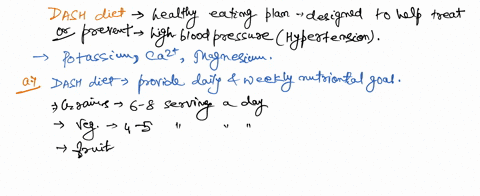 DASH diet → healthy eating plan → designed to help treat
or prevent → high blood pressure (Hypertension).
→ Potassium, Ca2+, Magnesium.
a7 DASH diet → provide daily & weekly nutriontal goal.
→ Grains → 6-8 serving a day
→ Veg. → 4-5 " " "
→ fruit